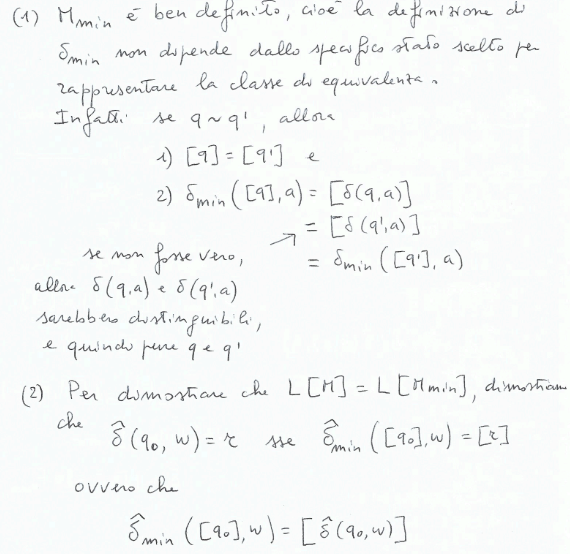 (1) Mmin è ben definito, cioè la definizione di
δmin non dipende dallo specifico stato scelto per
rappresentare la classe di equivalenza.
Infatti se q ~ q', allora
1) [q] = [q'] e
2) δmin([q],a) = [δ(q,a)]
= [δ(q',a)]
= δmin([q'],a)
se non fosse vero,
allora δ(q,a) e δ(q',a)
sarebbero distinguibili,
e quindi pure q e q'
(2) Per dimostrare che L[M] = L[Mmin], dimostriam
che δ̂(q₀, w) = r sse δ̂min([q₀],w) = [r]
ovvero che
δ̂min([q₀],w) = [δ̂(q₀,w)]